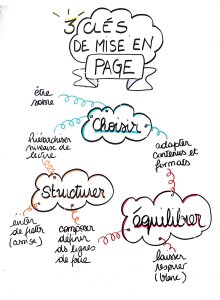 3 CLÉS
DE MISE EN
PAGE
être
sobre
Choisir
hiérarchiser
niveaux de
lecture
adapter
contenus et
formats
Structurer
équilibrer
éviter
de
composer
définir
ds lignes
de force
laisser
respirer
(blanc)